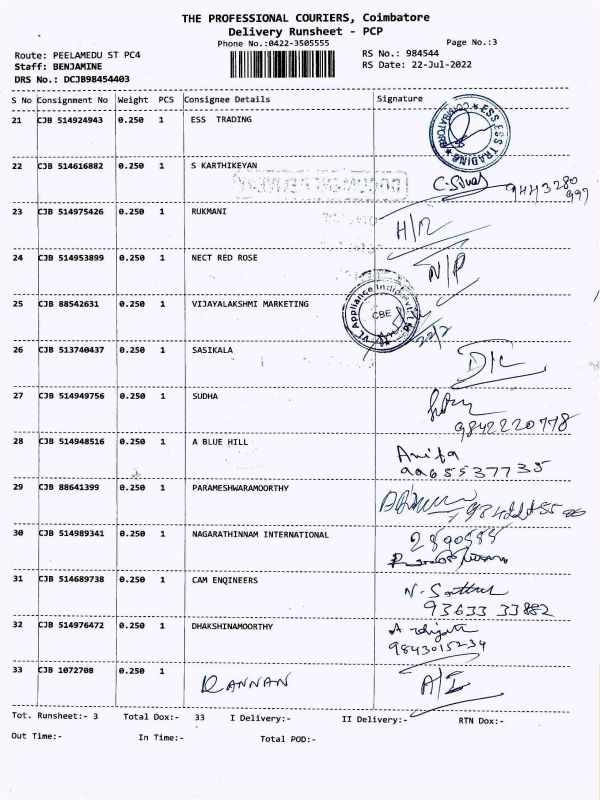 THE PROFESSIONAL COURIERS, Coimbatore
Delivery Runsheet - PCP
Phone No.:0422-3505555
Page No.:3
Route: PEELAMEDU ST PC4
RS No.: 984544
Staff: BENJAMINE
RS Date: 22-Jul-2022
DRS No.: DCJB98454403
S No Consignment No Weight PCS Consignee Details Signature
21 CJB 514924943 0.250 1 ESS TRADING
ESS ESS TRADING COIMBATORE
22 CJB 514616882 0.250 1 S KARTHIKEYAN
9443280
999
23 CJB 514975426 0.250 1 RUKMANI
H/R
24 CJB 514953899 0.250 1 NECT RED ROSE
N/P
25 CJB 88542631 0.250 1 VIJAYALAKSHMI MARKETING
CBE
22/7
26 CJB 513740437 0.250 1 SASIKALA
D/L
27 CJB 514949756 0.250 1 SUDHA
9842220778
28 CJB 514948516 0.250 1 A BLUE HILL
Anita
9965537735
29 CJB 88641399 0.250 1 PARAMESHWARAMOORTHY
30 CJB 514989341 0.250 1 NAGARATHINNAM INTERNATIONAL
31 CJB 514689738 0.250 1 CAM ENQINEERS
93633 33882
32 CJB 514976472 0.250 1 DHAKSHINAMOORTHY
9843015234
33 CJB 1072708 0.250 1 KANNAN A/I
Tot. Runsheet:- 3 Total Dox:- 33 I Delivery:- II Delivery:- RTN Dox:-
Out Time:- In Time:- Total POD:-